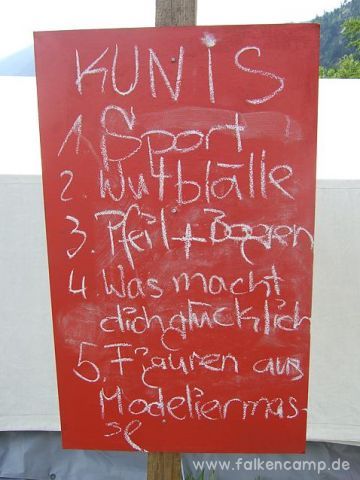 KUNIS
1. Sport
2. Wutbälle
3. Pfeil + Bogen
4. Was macht
dich glücklich
5. Figuren aus
Modeliermas-
se
www.falkencamp.de